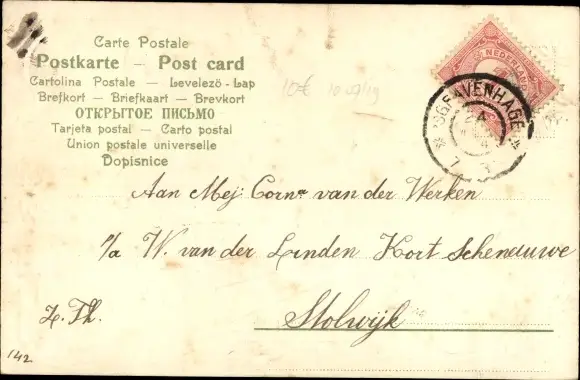 Carte Postale
Postkarte — Post card
Cartolina Postale — Levelező-Lap
Brefkort — Briefkaart — Brevkort
ОТКРЫТОЕ ПИСЬМО
Tarjeta postal — Carto postal
Union postale universelle
Dopisnice
NEDERLAND
'SGRAVENHAGE
Aan Mej Corna van der Werken
p/a W. van der Linden Kort Scheneuwe
Z. Th.
Stolwijk
142.